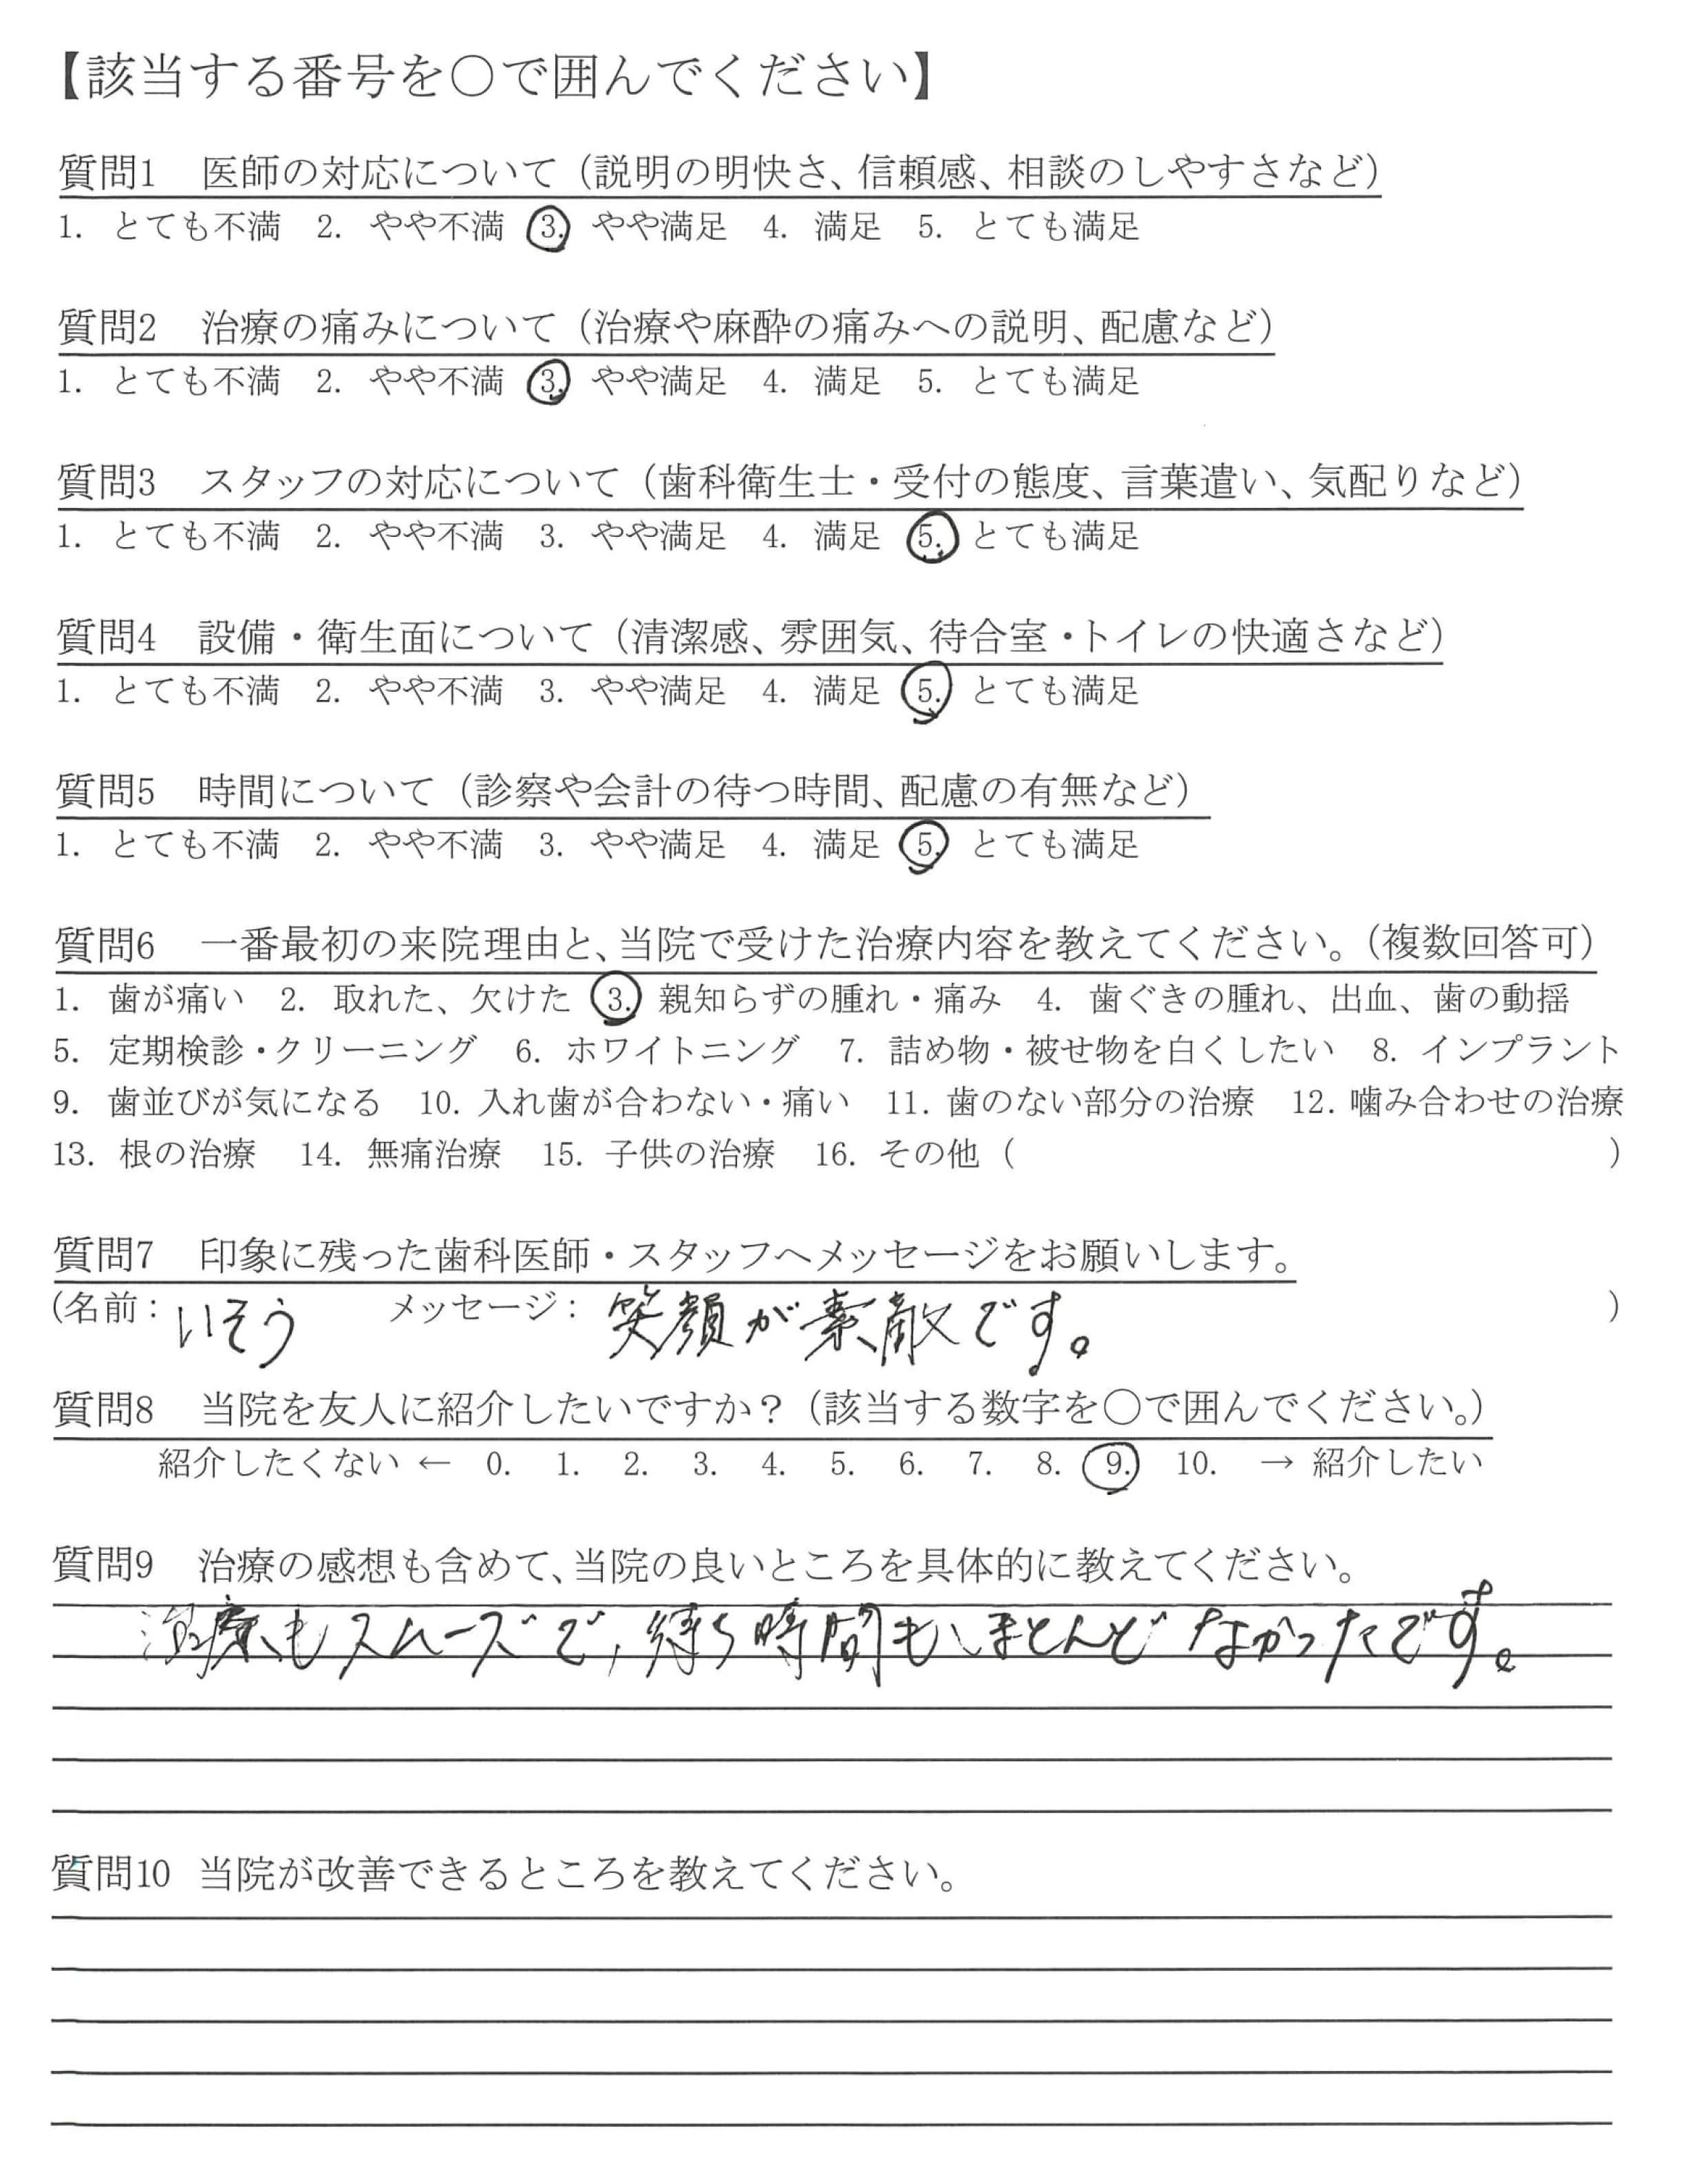 【該当する番号を○で囲んでください】
質問1　医師の対応について（説明の明快さ、信頼感、相談のしやすさなど）
1. とても不満　2. やや不満　3. やや満足　4. 満足　5. とても満足
質問2　治療の痛みについて（治療や麻酔の痛みへの説明、配慮など）
1. とても不満　2. やや不満　3. やや満足　4. 満足　5. とても満足
質問3　スタッフの対応について（歯科衛生士・受付の態度、言葉遣い、気配りなど）
1. とても不満　2. やや不満　3. やや満足　4. 満足　5. とても満足
質問4　設備・衛生面について（清潔感、雰囲気、待合室・トイレの快適さなど）
1. とても不満　2. やや不満　3. やや満足　4. 満足　5. とても満足
質問5　時間について（診察や会計の待つ時間、配慮の有無など）
1. とても不満　2. やや不満　3. やや満足　4. 満足　5. とても満足
質問6　一番最初の来院理由と、当院で受けた治療内容を教えてください。（複数回答可）
1. 歯が痛い　2. 取れた、欠けた　3. 親知らずの腫れ・痛み　4. 歯ぐきの腫れ、出血、歯の動揺
5. 定期検診・クリーニング　6. ホワイトニング　7. 詰め物・被せ物を白くしたい　8. インプラント
9. 歯並びが気になる　10. 入れ歯が合わない・痛い　11. 歯のない部分の治療　12. 噛み合わせの治療
13. 根の治療　14. 無痛治療　15. 子供の治療　16. その他（　　　）
質問7　印象に残った歯科医師・スタッフへメッセージをお願いします。
（名前：いそう　メッセージ：笑顔が素敵です。　）
質問8　当院を友人に紹介したいですか？（該当する数字を○で囲んでください。）
紹介したくない ← 0. 1. 2. 3. 4. 5. 6. 7. 8. 9. 10. → 紹介したい
質問9　治療の感想も含めて、当院の良いところを具体的に教えてください。
治療もスムーズで、待ち時間もほとんどなかったです。
質問10　当院が改善できるところを教えてください。